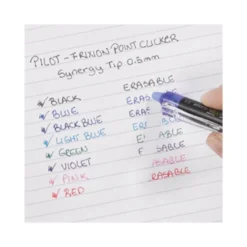 PILOT - FRIXION POINT CLICKER
Synergy Tip 0.5mm
BLACK ERASABLE
BLUE ERAS
BLACK BLUE ERAS
LIGHT BLUE ER
GREEN E ABLE
VIOLET F SABLE
PINK ASABLE
RED RASABLE